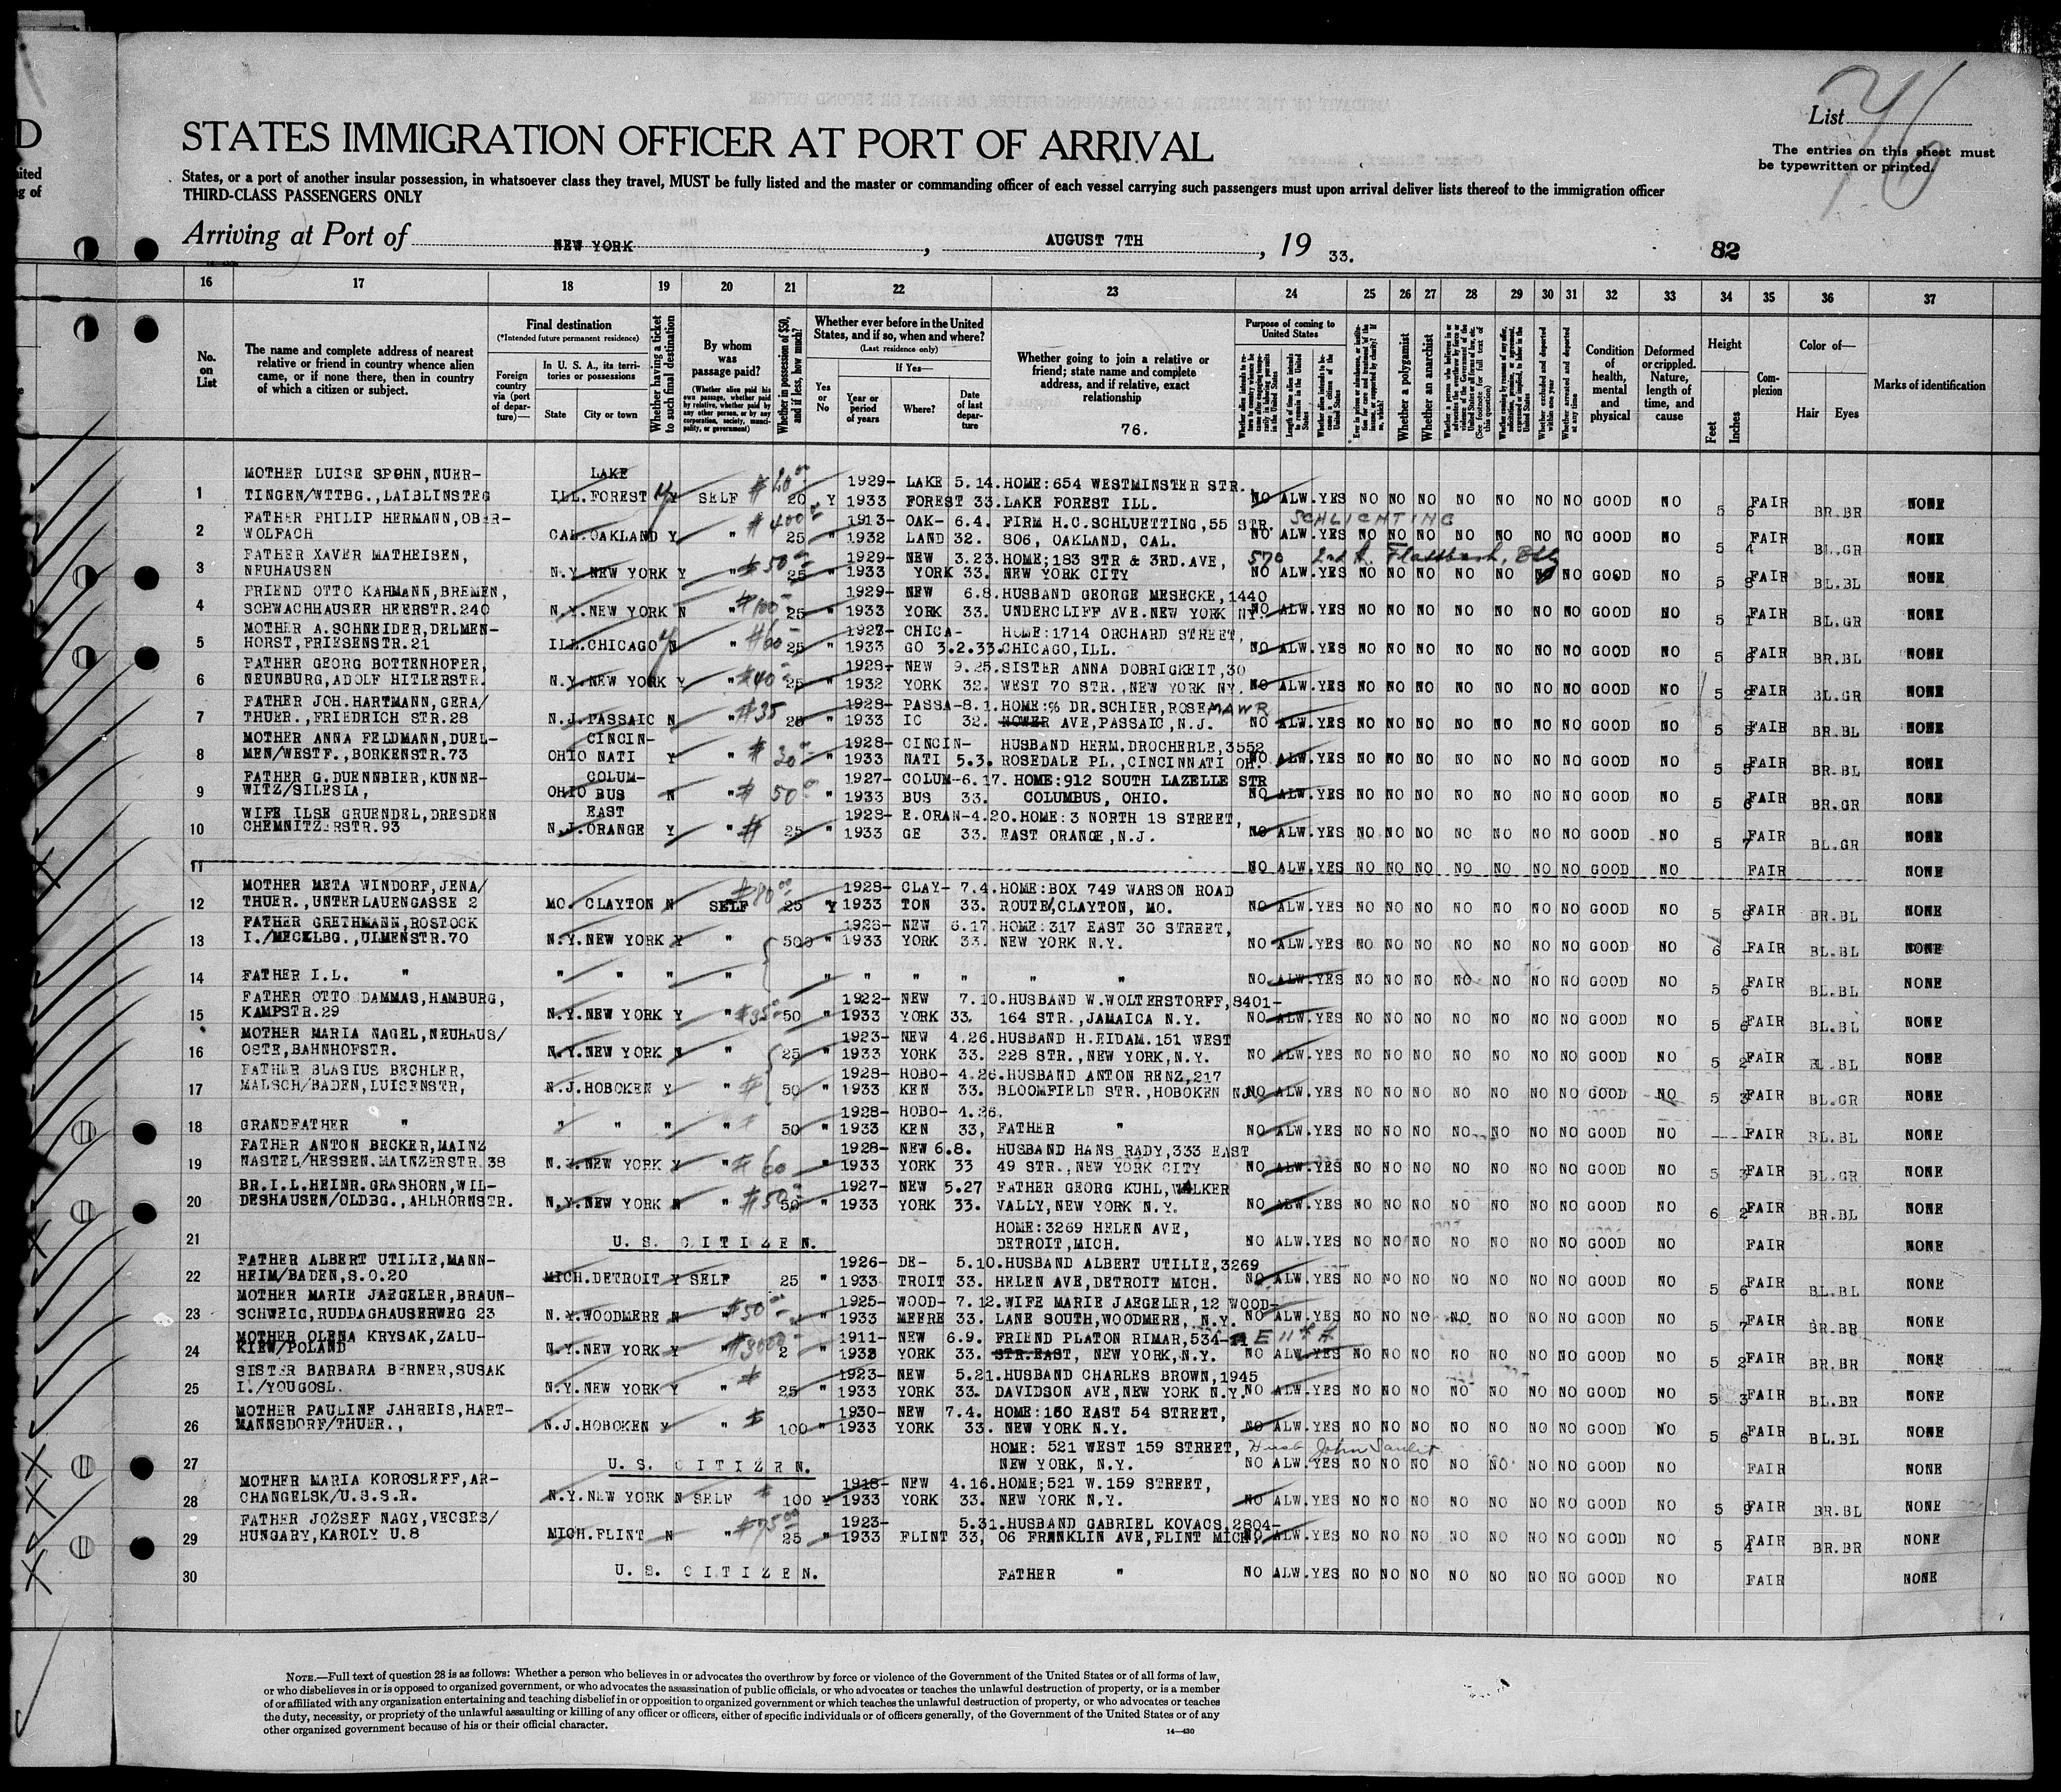 List 76
The entries on this sheet must
be typewritten or printed.
STATES IMMIGRATION OFFICER AT PORT OF ARRIVAL
States, or a port of another insular possession, in whatsoever class they travel, MUST be fully listed and the master or commanding officer of each vessel carrying such passengers must upon arrival deliver lists thereof to the immigration officer
THIRD-CLASS PASSENGERS ONLY
Arriving at Port of NEW YORK, AUGUST 7TH, 19 33.
82
16 17 18 19 20 21 22 23 24 25 26 27 28 29 30 31 32 33 34 35 36 37
No. on List
The name and complete address of nearest
relative or friend in country whence alien
came, or if none there, then in country
of which a citizen or subject.
Final destination
(*Intended future permanent residence)
Foreign country via (port of departure)—
In U. S. A., its territories or possessions
State
City or town
Whether having a ticket to such final destination
By whom was passage paid?
(Whether alien paid his own passage, whether paid by relative, whether paid by any other person, or by any corporation, society, municipality, or government)
Whether in possession of $50, and if less, how much?
Whether ever before in the United
States, and if so, when and where?
(Last residence only)
Yes or No
If Yes—
Year or period of years
Where?
Date of last departure
Whether going to join a relative or
friend; state name and complete
address, and if relative, exact
relationship
76.
Purpose of coming to United States
Whether a polygamist
Whether an anarchist
Condition of health, mental and physical
Deformed or crippled. Nature, length of time, and cause
Height
Feet
Inches
Complexion
Color of—
Hair
Eyes
Marks of identification
MOTHER LUISE SPOHN, NUER- LAKE 1929- LAKE 5.14. HOME:654 WESTMINSTER STR.
1 TINGEN/WTTBG.,LAIBLINSTEG ILL. FOREST Y SELF 20 Y 1933 FOREST 33. LAKE FOREST ILL. NO ALW. YES NO NO NO NO NO NO NO GOOD NO 5 6 FAIR BR.BR NONE
FATHER PHILIP HERMANN, OBER- $400 1913- OAK- 6.4. FIRM H.C.SCHLUETTING,55 STR. SCHLICHTING
2 WOLFACH CAL. OAKLAND Y " 25 " 1932 LAND 32. 806, OAKLAND, CAL. NO ALW. YES NO NO NO NO NO NO NO GOOD NO 5 4 FAIR BL.GR NONE
FATHER XAVER MATHEISEN, $50 1929- NEW 3.23. HOME;183 STR & 3RD.AVE, 570 2nd
3 NEUHAUSEN N.Y. NEW YORK Y " 25 " 1933 YORK 33. NEW YORK CITY NO ALW. YES NO NO NO NO NO NO NO GOOD NO 5 8 FAIR BL.BL NONE
FRIEND OTTO KAHMANN, BREMEN, $100 1929- NEW 6.8. HUSBAND GEORGE MESECKE,1440
4 SCHWACHHAUSER HEERSTR.240 N.Y. NEW YORK N " 25 " 1933 YORK 33. UNDERCLIFF AVE.NEW YORK NY. NO ALW. YES NO NO NO NO NO NO NO GOOD NO 5 1 FAIR BL.GR NONE
MOTHER A.SCHNEIDER, DELMEN- $60 1927- CHICA- HOME:1714 ORCHARD STREET,
5 HORST, FRIESENSTR.21 ILL. CHICAGO N " 25 " 1933 GO 3.2.33. CHICAGO, ILL. NO ALW. YES NO NO NO NO NO NO NO GOOD NO 5 6 FAIR BR.BL NONE
FATHER GEORG BOTTENHOFER, $40 1928- NEW 9.25. SISTER ANNA DOBRIGKEIT,30
6 NEUNBURG, ADOLF HITLERSTR. N.Y. NEW YORK Y " 25 " 1932 YORK 32. WEST 70 STR., NEW YORK NY. NO ALW. YES NO NO NO NO NO NO NO GOOD NO 5 2 FAIR BL.GR NONE
FATHER JOH.HARTMANN, GERA/ $35 1928- PASSA- 8.1. HOME:% DR.SCHIER, ROSEMAWR
7 THUER., FRIEDRICH STR.28 N.J. PASSAIC N " 25 " 1933 IC 32. NOWER AVE, PASSAIC, N.J. NO ALW. YES NO NO NO NO NO NO NO GOOD NO 5 5 FAIR BR.BL NONE
MOTHER ANNA FELDMANN, DUEL- CINCIN- 1928- CINCIN- HUSBAND HERM.DROCHERLE,3552
8 MEN/WESTF., BORKENSTR.73 OHIO NATI Y " $ 30 " 1933 NATI 5.3. ROSEDALE PL., CINCINNATI OH. NO ALW. YES NO NO NO NO NO NO NO GOOD NO 5 5 FAIR BR.BL NONE
FATHER G.DUENNBIER, KUNNE- COLUM- 1927- COLUM- 6.17. HOME:912 SOUTH LAZELLE STR
9 WITZ/SILESIA, OHIO BUS N " $ 50 " 1933 BUS 33. COLUMBUS, OHIO. NO ALW. YES NO NO NO NO NO NO NO GOOD NO 5 6 FAIR BR.GR NONE
WIFE ILSE GRUENDEL, DRESDEN EAST 1928- E.ORAN- 4.20. HOME:3 NORTH 18 STREET,
10 CHEMNITZERSTR.93 N.J. ORANGE Y " $ 25 " 1933 GE 33. EAST ORANGE, N.J. NO ALW. YES NO NO NO NO NO NO NO GOOD NO 5 7 FAIR BL.GR NONE
11 NO ALW. YES NO NO NO NO NO NO NO GOOD NO FAIR NONE
MOTHER META WINDORF, JENA/ $80 1928- CLAY- 7.4. HOME:BOX 749 WARSON ROAD
12 THUER., UNTERLAUENGASSE 2 MO. CLAYTON N SELF 25 Y 1933 TON 33. ROUTE, CLAYTON, MO. NO ALW. YES NO NO NO NO NO NO NO GOOD NO 5 FAIR BR.BL NONE
FATHER GRETHMANN, ROSTOCK 1928- NEW 6.17. HOME:317 EAST 30 STREET,
13 I./MECKLBG., ULMENSTR.70 N.Y. NEW YORK Y " 500 " 1933 YORK 33. NEW YORK N.Y. NO ALW. YES NO NO NO NO NO NO NO GOOD NO 6 - FAIR BL.BL NONE
14 FATHER I.L. " " " " " " " " " " " NO ALW. YES NO NO NO NO NO NO NO GOOD NO 5 6 FAIR BL.BL NONE
FATHER OTTO DAMMAS, HAMBURG, 1922- NEW 7.10. HUSBAND W.WOLTERSTORFF,8401-
15 KAMPSTR.29 N.Y. NEW YORK Y " $35 50 " 1933 YORK 33. 164 STR., JAMAICA N.Y. NO ALW. YES NO NO NO NO NO NO NO GOOD NO 5 6 FAIR BL.BL NONE
MOTHER MARIA NAGEL, NEUHAUS/ 1923- NEW 4.26. HUSBAND H.EIDAM.151 WEST
16 OSTE, BAHNHOFSTR. N.Y. NEW YORK N " 25 " 1933 YORK 33. 228 STR., NEW YORK, N.Y. NO ALW. YES NO NO NO NO NO NO NO GOOD NO 5 2 FAIR BL.BL NONE
FATHER BLASIUS BECHLER, 1928- HOBO- 4.26. HUSBAND ANTON RENZ,217
17 MALSCH/BADEN, LUISENSTR, N.J. HOBOKEN Y " $ 50 " 1933 KEN 33. BLOOMFIELD STR., HOBOKEN NJ. NO ALW. YES NO NO NO NO NO NO NO GOOD NO 5 3 FAIR BL.GR NONE
1928- HOBO- 4.26.
18 GRANDFATHER " " " " " 50 " 1933 KEN 33, FATHER " NO ALW. YES NO NO NO NO NO NO NO GOOD NO FAIR BL.BL NONE
FATHER ANTON BECKER, MAINZ 1928- NEW 6.8. HUSBAND HANS RADY,333 EAST
19 NASTEL/HESSEN.MAINZERSTR.38 N.Y. NEW YORK Y " $ 60 " 1933 YORK 33 49 STR., NEW YORK CITY NO ALW. YES NO NO NO NO NO NO NO GOOD NO 5 3 FAIR BL.GR NONE
BR.I.L.HEINR.GRASHORN, WIL- 1927- NEW 5.27 FATHER GEORG KUHL, WALKER
20 DESHAUSEN/OLDBG., AHLHORNSTR. N.Y. NEW YORK N " $50 50 " 1933 YORK 33. VALLY, NEW YORK N.Y. NO ALW. YES NO NO NO NO NO NO NO GOOD NO 6 2 FAIR BR.BL NONE
HOME:3269 HELEN AVE,
21 U. S. CITIZEN. DETROIT, MICH. NO ALW. YES NO NO NO NO NO NO NO GOOD NO FAIR NONE
FATHER ALBERT UTILIE, MANN- 1926- DE- 5.10. HUSBAND ALBERT UTILIE,3269
22 HEIM/BADEN, S.O.20 MICH. DETROIT Y SELF 25 " 1933 TROIT 33. HELEN AVE, DETROIT MICH. NO ALW. YES NO NO NO NO NO NO NO GOOD NO 5 6 FAIR BL.BL NONE
MOTHER MARIE JAEGELER, BRAUN- 1925- WOOD- 7.12. WIFE MARIE JAEGELER,12 WOOD-
23 SCHWEIG, RUDDAGHAUSERWEG 23 N.Y. WOODMERE N " $50 " 1933 MEERE 33. LANE SOUTH, WOODMERE, N.Y. NO ALW. YES NO NO NO NO NO NO NO GOOD NO 5 7 FAIR BR.BR NONE
MOTHER OLENA KRYSAK, ZALU- 1911- NEW 6.9. FRIEND PLATON RIMAR,534- E 11
24 KIEW/POLAND N.Y. NEW YORK Y " $3000 2 " 1933 YORK 33. STR.EAST, NEW YORK, N.Y. NO ALW. YES NO NO NO NO NO NO NO GOOD NO 5 2 FAIR BR.BR NONE
SISTER BARBARA BERNER, SUSAK 1923- NEW 5.21. HUSBAND CHARLES BROWN,1945
25 I./YOUGOSL. N.Y. NEW YORK Y " 25 " 1933 YORK 33. DAVIDSON AVE, NEW YORK N.Y. NO ALW. YES NO NO NO NO NO NO NO GOOD NO 5 3 FAIR BL.BR NONE
MOTHER PAULINE JAHREIS, HART- 1930- NEW 7.4. HOME:150 EAST 54 STREET,
26 MANNSDORF/THUER., N.J. HOBOKEN Y " 100 " 1933 YORK 33. NEW YORK N.Y. NO ALW. YES NO NO NO NO NO NO NO GOOD NO 5 6 FAIR BL.BL NONE
HOME: 521 WEST 159 STREET, Husb John
27 U. S. CITIZEN. NEW YORK, N.Y. NO ALW. YES NO NO NO NO NO NO NO GOOD NO FAIR NONE
MOTHER MARIA KOROSLEFF, AR- 1918- NEW 4.16. HOME;521 W.159 STREET,
28 CHANGELSK/U.S.S.R. N.Y. NEW YORK N SELF 100 Y 1933 YORK 33. NEW YORK N.Y. NO ALW. YES NO NO NO NO NO NO NO GOOD NO 5 9 FAIR BR.BL NONE
FATHER JOZSEF NAGY, VECSES/ $75 1923- 5.31. HUSBAND GABRIEL KOVACS,2804-
29 HUNGARY, KAROLY U.8 MICH. FLINT N " 25 " 1933 FLINT 33, 06 FRANKLIN AVE, FLINT MICH. NO ALW. YES NO NO NO NO NO NO NO GOOD NO 5 4 FAIR BR.BR NONE
30 U. S. CITIZEN. FATHER " NO ALW. YES NO NO NO NO NO NO NO GOOD NO FAIR NONE
NOTE.—Full text of question 28 is as follows: Whether a person who believes in or advocates the overthrow by force or violence of the Government of the United States or of all forms of law,
or who disbelieves in or is opposed to organized government, or who advocates the assassination of public officials, or who advocates or teaches the unlawful destruction of property, or is a member
of or affiliated with any organization entertaining and teaching disbelief in or opposition to organized government or which teaches the unlawful destruction of property, or who advocates or teaches
the duty, necessity, or propriety of the unlawful assaulting or killing of any officer or officers, either of specific individuals or of officers generally, of the Government of the United States or of any
other organized government because of his or their official character.
14—430